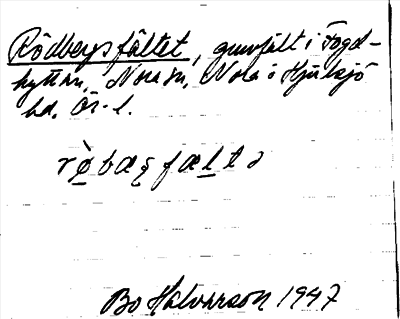 Rödbergsfältet, gruvfält i Fogd-
hyttan, Nora sn, Nora o Hjulsjö
hd. Ör. l.
rø̀bæs̨fæltə
Bo Halvarson 1947